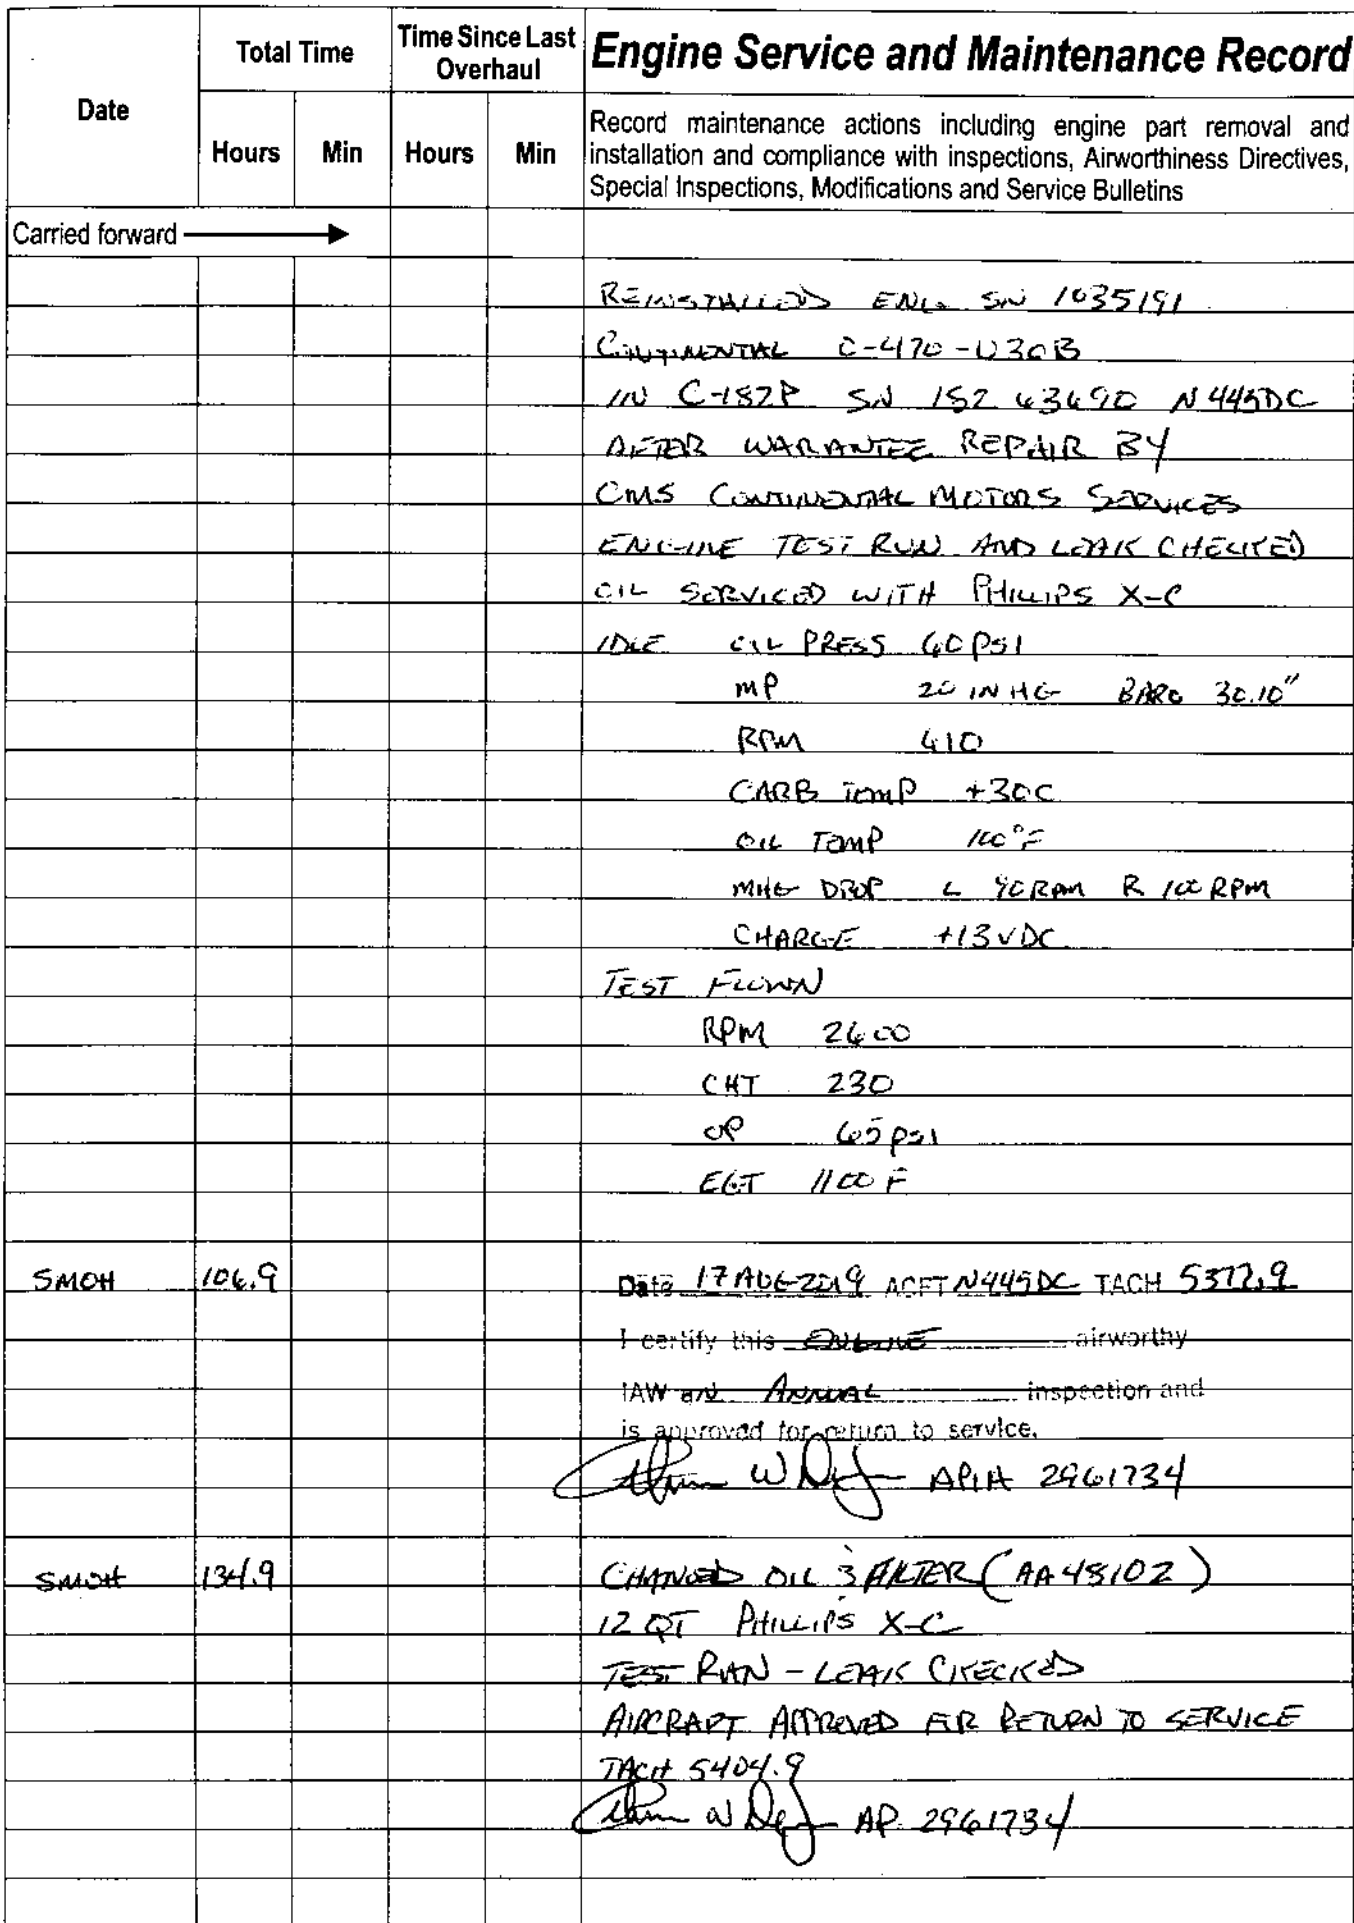 Date
Total Time
Time Since Last Overhaul
Engine Service and Maintenance Record
Hours Min Hours Min
Record maintenance actions including engine part removal and
installation and compliance with inspections, Airworthiness Directives,
Special Inspections, Modifications and Service Bulletins
Carried forward
REINSTALLED ENG. SN 1035191
CONTINENTAL O-470-U30B
IN C-182P SN 182 63690 N445DC
AFTER WARANTEE REPAIR BY
CMS CONTINENTAL MOTORS SERVICES
ENGINE TEST RUN AND LEAK CHECKED
OIL SERVICED WITH PHILLIPS X-C
IDLE OIL PRESS 60 PSI
MP 20 IN HG BARO 30.10"
RPM 610
CARB TEMP +30C
OIL TEMP 100°F
MAG DROP L 90 RPM R 100 RPM
CHARGE +13 VDC
TEST FLOWN
RPM 2600
CHT 230
OP 65 PSI
EGT 1100 F
SMOH 106.9 Date 17 AUG 2019 ACFT N445DC TACH 5377.9
I certify this ENGINE airworthy
IAW an ANNUAL inspection and
is approved for return to service.
W APIA 2961734
SMOH 134.9 CHANGED OIL & FILTER (AA48102)
12 QT PHILLIPS X-C
TEST RAN - LEAK CHECKED
AIRCRAFT APPROVED FOR RETURN TO SERVICE
TACH 5404.9
W AP 2961734